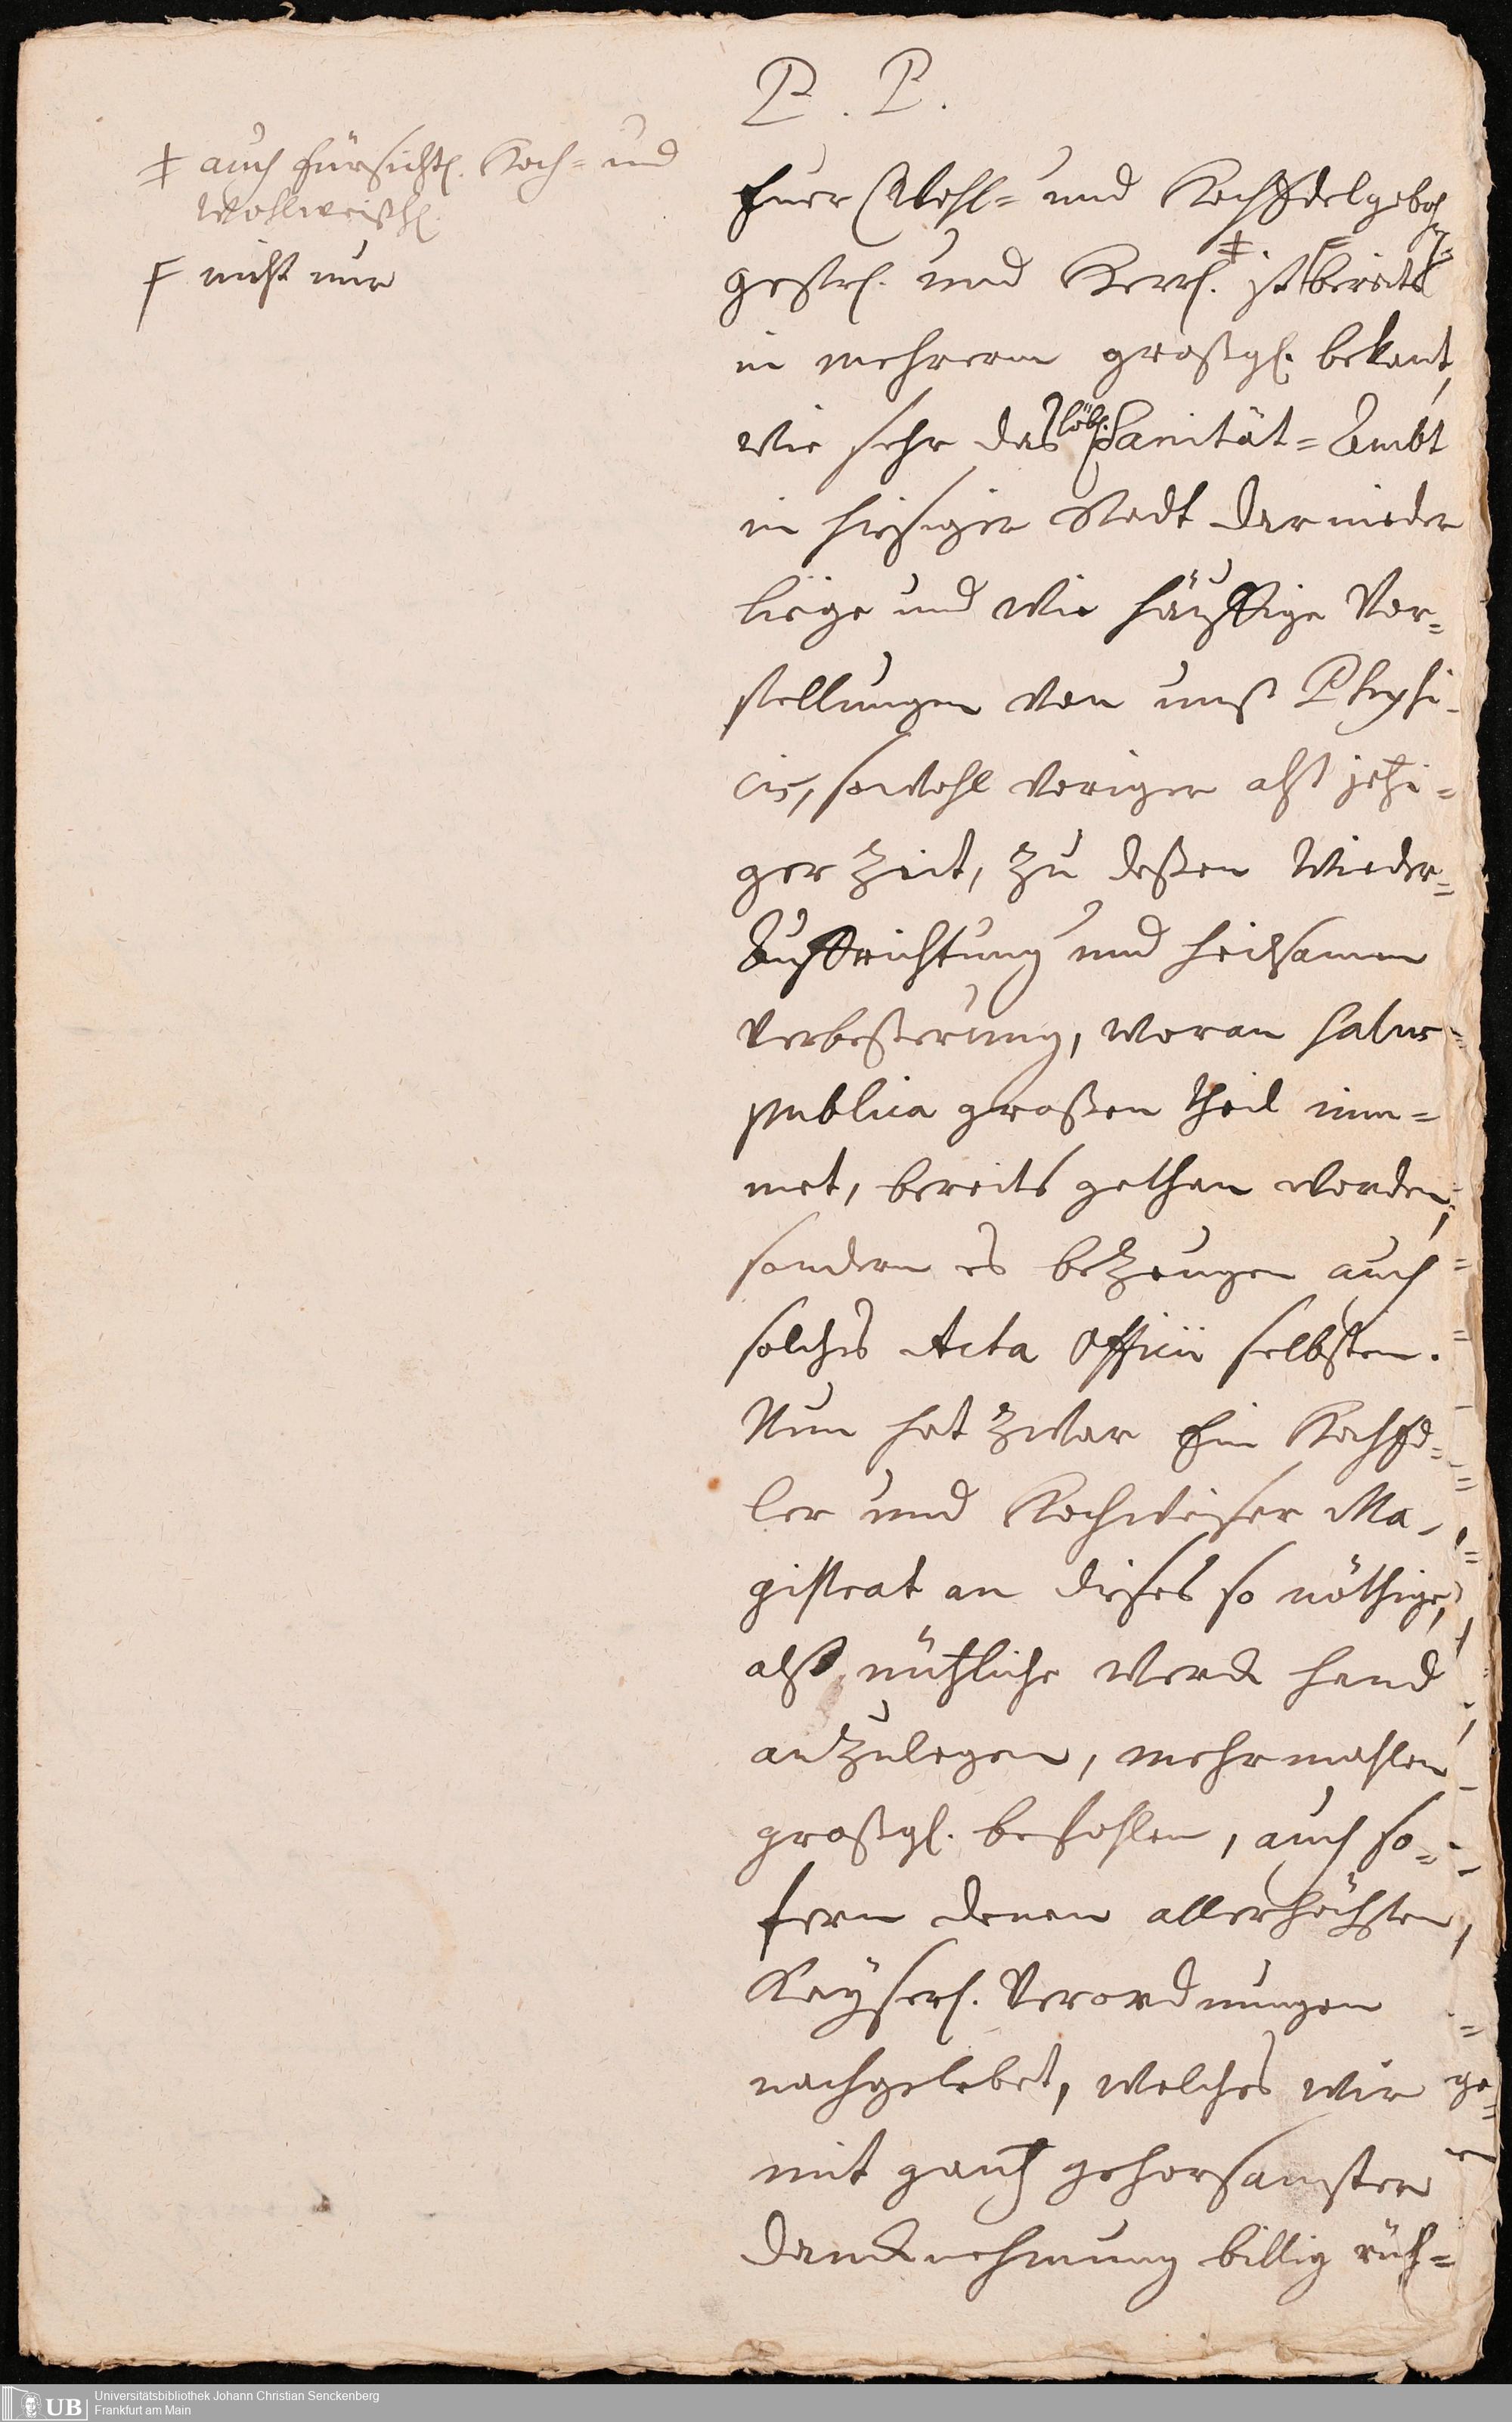 P. P.
‡ auch fürsichtl. Hoch= und
Wohlweißhl.
F nicht nur
Euer Wohl= und HochEdelgeboh
gestrl. und Herrl. ‡. ist F bereits
in mehrerm großgl. bekant,
wie sehr das löbl. Sanität=Ambt
in hiesiger Stadt darnieder
liege und wie häuffige Vor=
stellungen von unß Physi-
cis, sowohl voriger alß jetzi=
ger Zeit, zu deßen Wieder=
Auffrichtung und heilsamen
Verbeßerung, woran salus
publica großen theil nim=
met, bereits gethan worden,
sondern es bezeugen auch
solches Acta Officii selbsten.
Nun hat zwar Ein HochEd=
ler und Hochweiser Ma-
gistrat an dieses so nöthige,
alß nützliche Werck hand
anzulegen, mehrmahlen
großgl. befohlen, auch so=
fern denen allerhöchsten,
Kayserl. Verordnungen
nachgelebet, welches wir
mit gantz gehorsamster
Dancknehmung billig rüh=
Universitätsbibliothek Johann Christian Senckenberg
Frankfurt am Main
UB